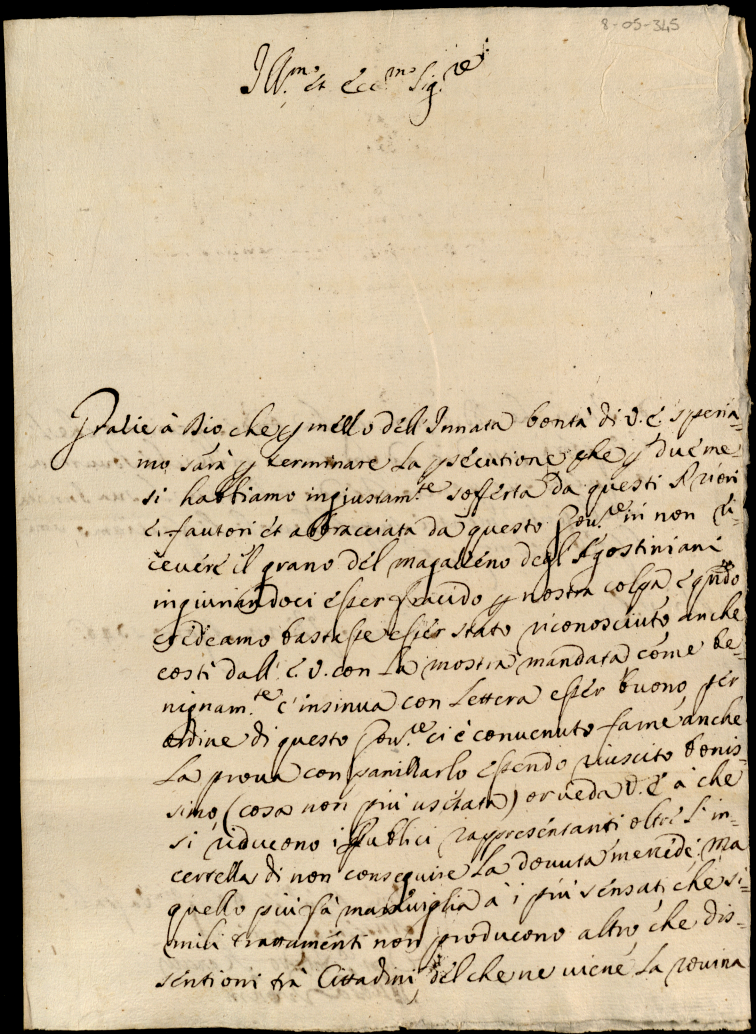 8-05-345
Ill.mo et Ecc.mo Sig.re
Gratie à Dio che p mezzo dell'Innata bontà di V. E. speria=
mo sarà p terminare La psecutione che p due me=
si habbiamo ingiustam.te sofferta da questi Priori
e fautori et abbracciata da questo Gou.re in non ri=
ceuere il grano del magazzeno degl'Agostiniani
ingiuriandoci esser fracido p nostra colpa e qndo
credeamo bastasse esser stato riconosciuto anche
costì dall'E. V. con La mostra mandata come be=
nignam.te c'insinua con Lettera esser buono, per
ordine di questo Gou.re ci è conuenuto farne anche
La proua con panizzarlo essendo riuscito bonis=
simo (cosa non più usitata) or ueda V. E. à che
si riducono i Publici rappresentanti oltre L'in=
certezza di non conseguire La douuta mercede, ma
quello più fà marauiglia à i più sensati che si=
mili trattamenti non producono altro che dis=
sentioni trà Cittadini, del che ne uiene La rouina